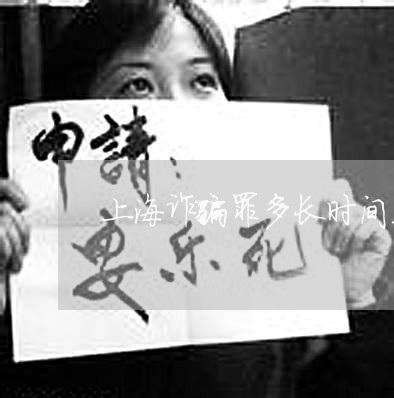 申請:
上海诈骗罪多长时间
安乐死